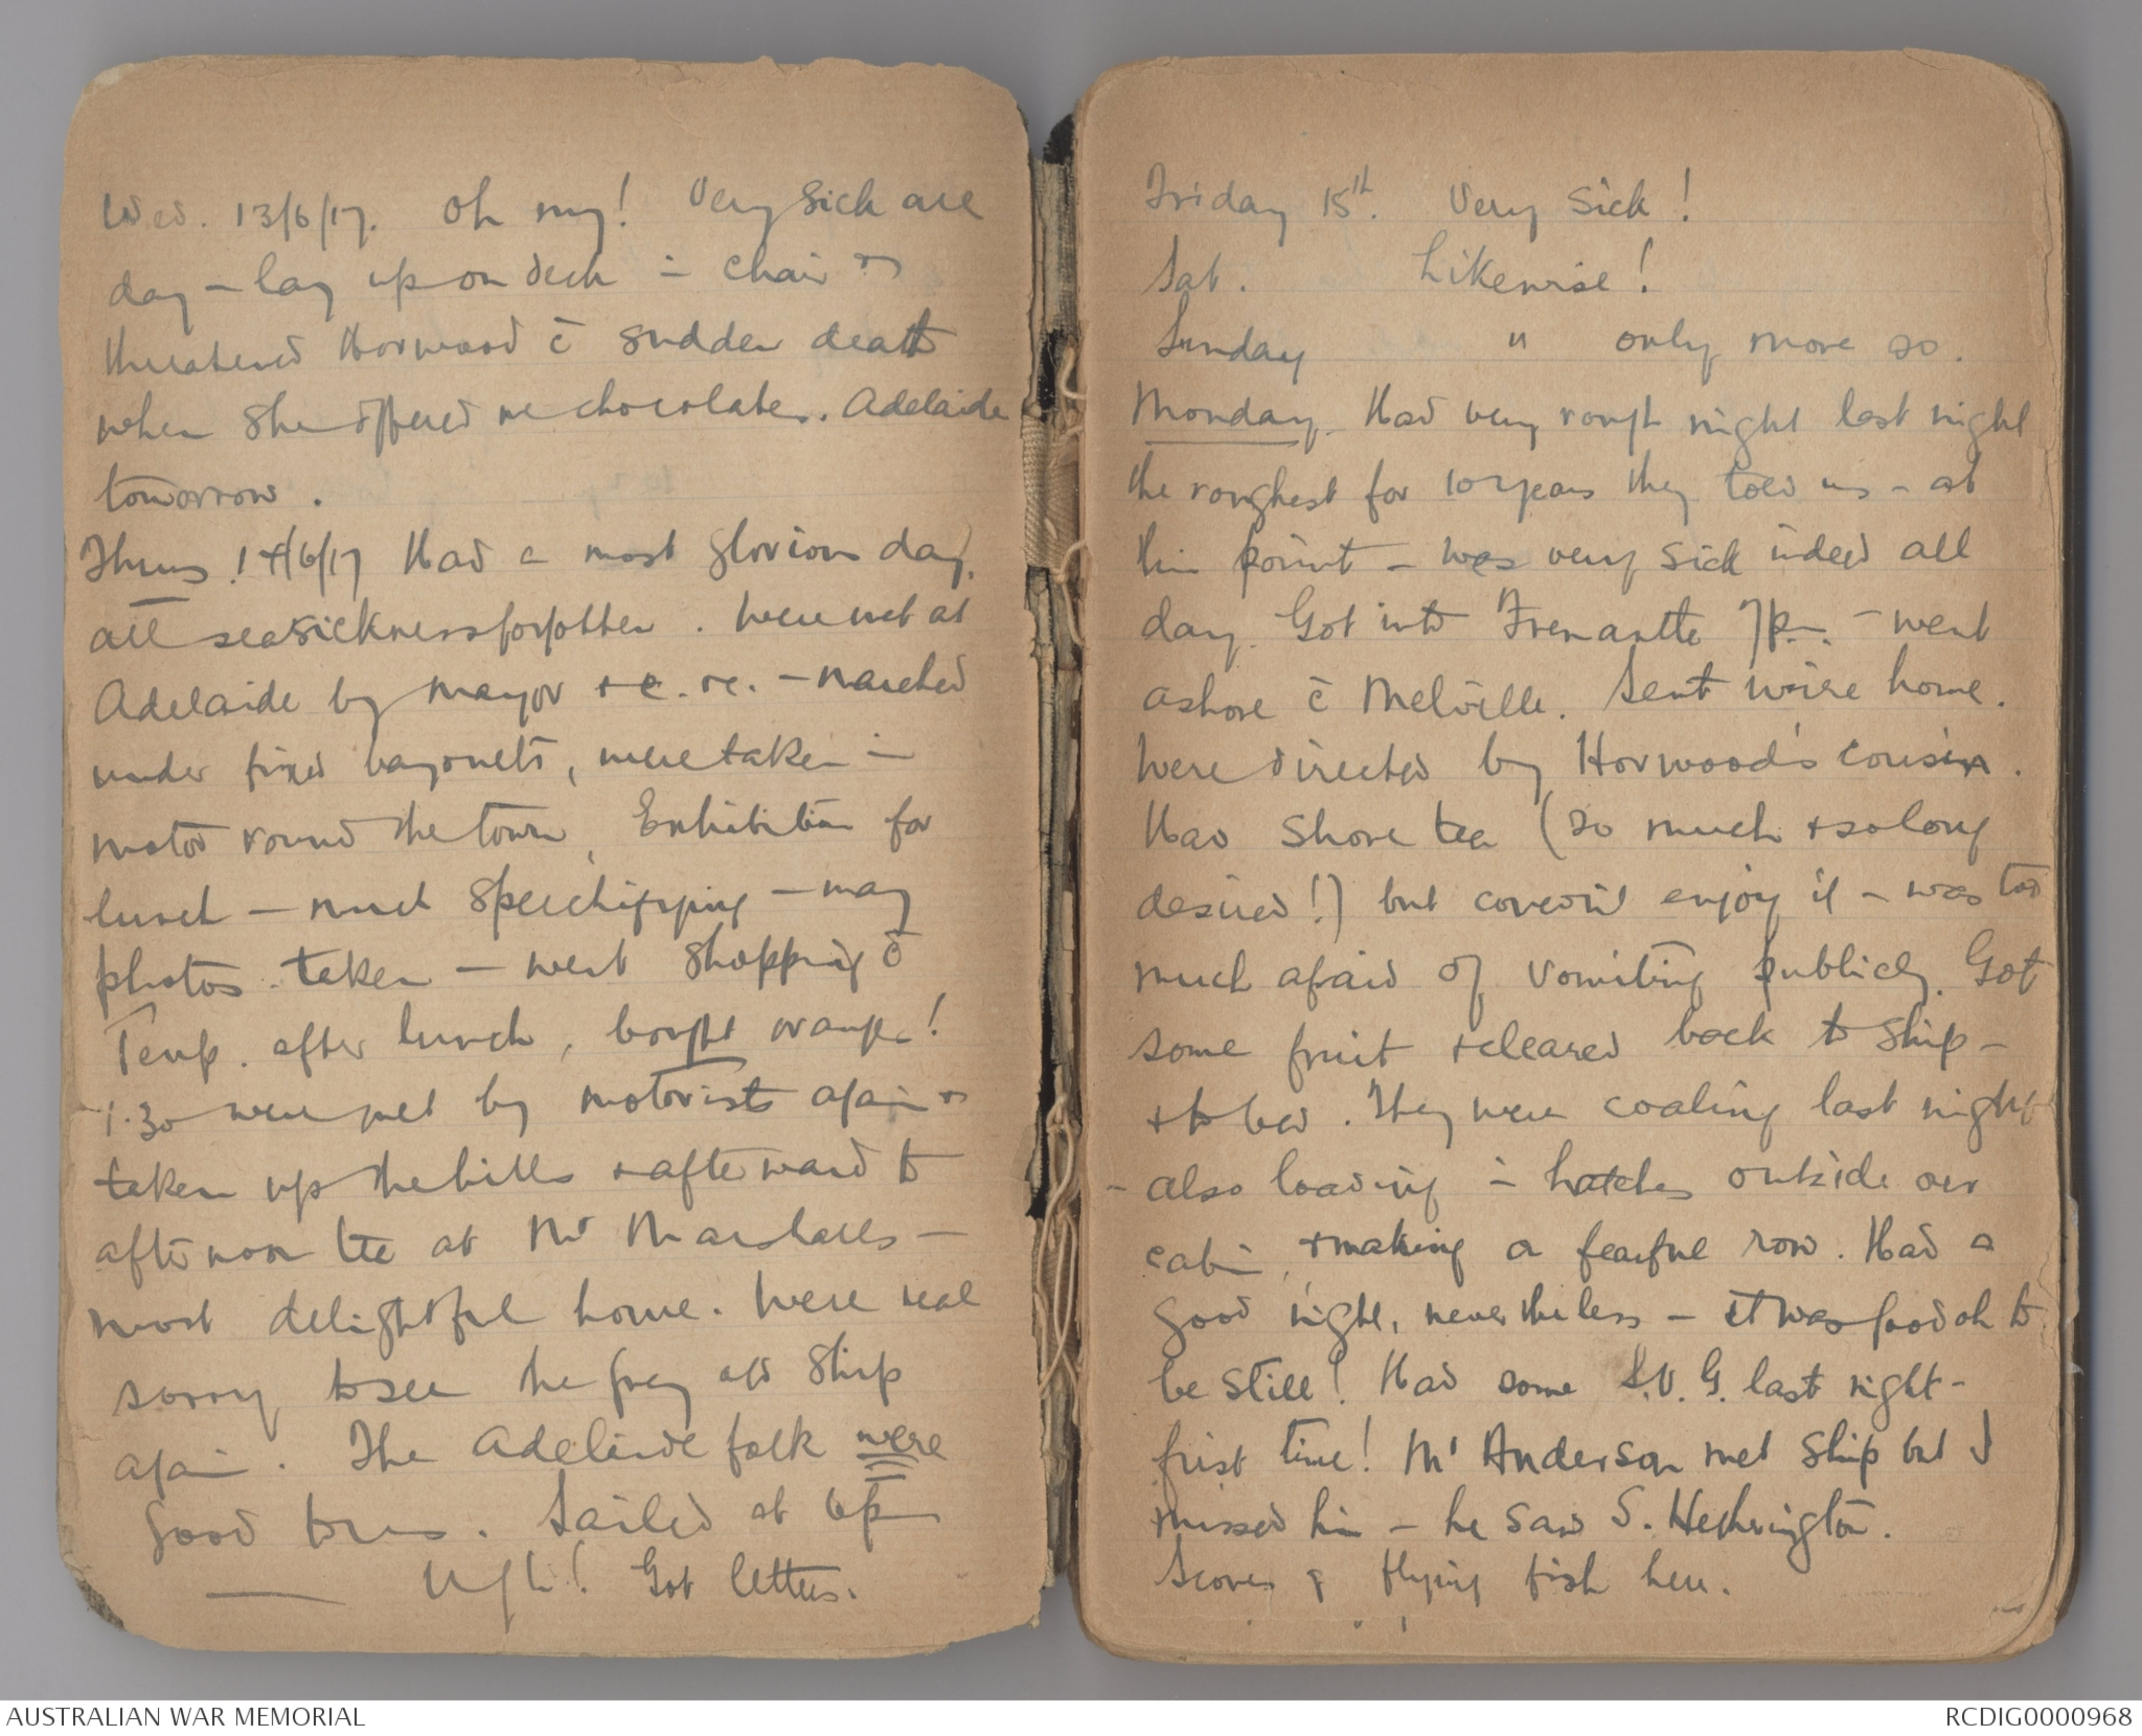 Wed. 13/6/17. Oh my! Very sick all
day – lay up on deck in chair &
threatened Horwood c̄ sudden death
when she offered me chocolates. Adelaide
tomorrow.
Thurs 14/6/17 Had a most glorious day,
all seasickness forgotten. Were met at
Adelaide by mayor &c. &c. – marched
under fixed bayonets, were taken in
motor round the town, Exhibition for
lunch – much speechifying – many
photos. taken – went shopping c̄
Temp. after lunch, bought oranges!
1.30 were met by motorists again &
taken up the hills & afterward to
afternoon tea at Mr Marshalls –
most delightful home. Were real
sorry to see the grey old ship
again. The Adelaide folk were
good to us. Sailed at 6pm
Ugh! Got letters.
Friday 15th. Very Sick!
Sat. Likewise!
Sunday " only more so.
Monday. Had very rough night last night
the roughest for 10 years they told us – at
this point – was very sick indeed all
day. Got into Fremantle 7p.m. – went
ashore c̄ Melville. Sent wire home.
Were directed by Horwood's cousin.
Had shore tea (so much & so long
desired!) but couldn't enjoy it – was too
much afraid of vomiting publicly. Got
some fruit & cleared back to ship –
& to bed. They were coaling last night
– also loading in hatches outside our
cabin, & making a fearful row. Had a
good night, nevertheless – it was good oh to
be still! Had some S.V.G. last night –
first time! Mr Anderson met ship but I
missed him – he saw S. Hetherington.
Scores of flying fish here.
AUSTRALIAN WAR MEMORIAL
RCDIG0000968